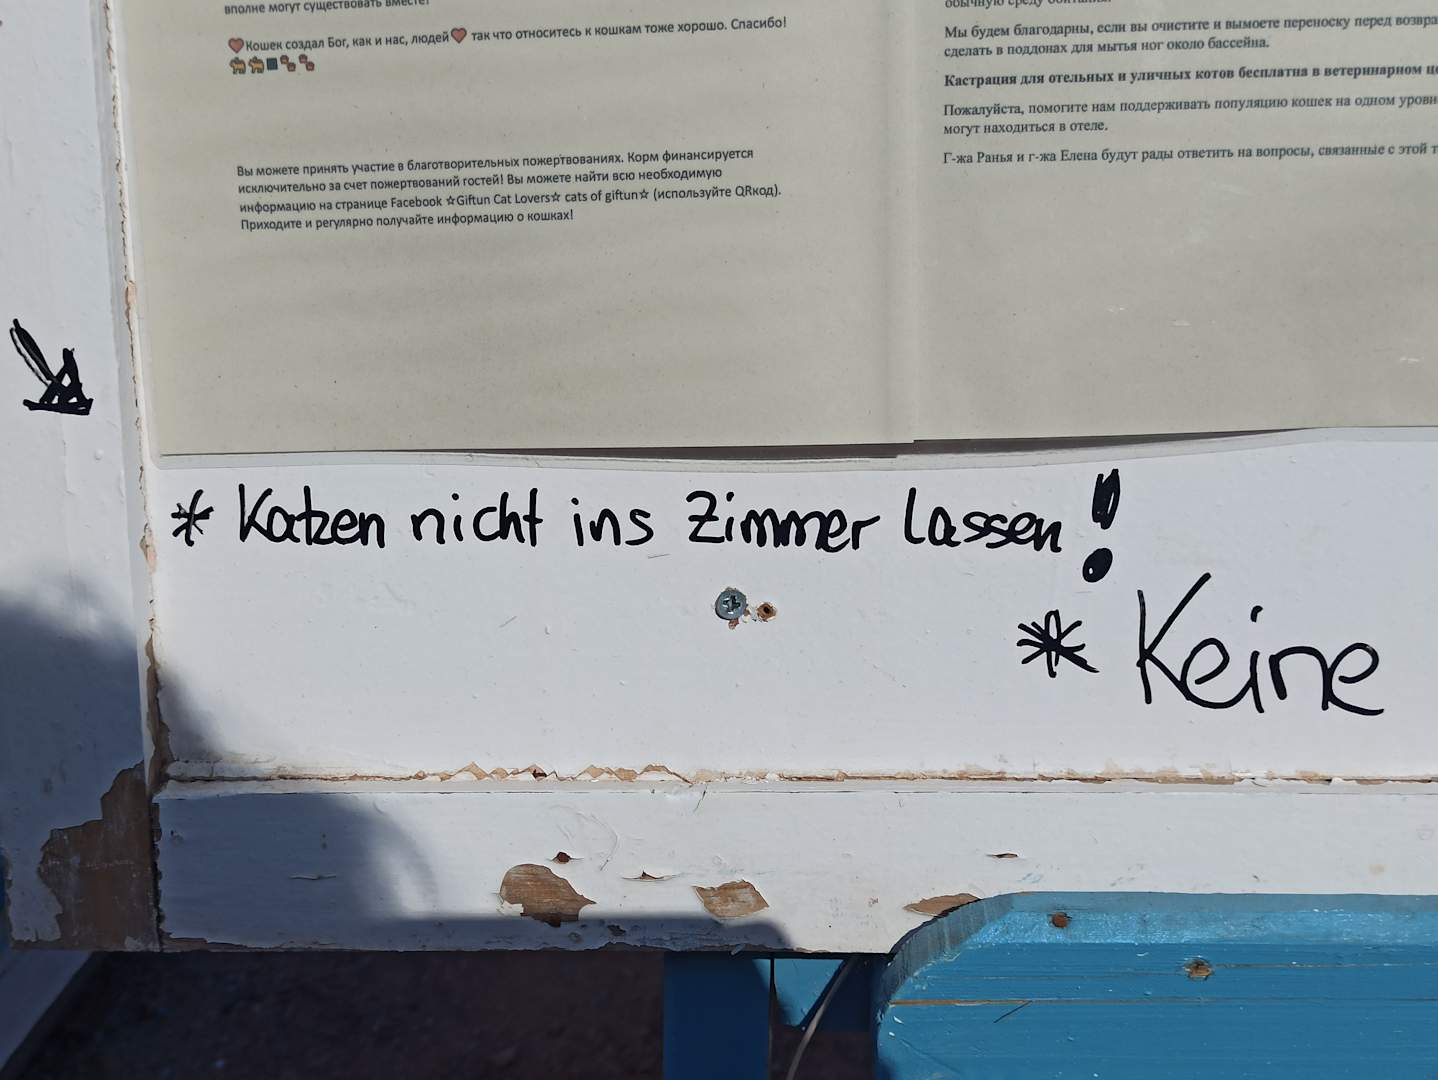 вполне могут существовать вместе!
❤️Кошек создал Бог, как и нас, людей❤️ так что относитесь к кошкам тоже хорошо. Спасибо!
Вы можете принять участие в благотворительных пожертвованиях. Корм финансируется
исключительно за счет пожертвований гостей! Вы можете найти всю необходимую
информацию на странице Facebook ☆Giftun Cat Lovers☆ cats of giftun☆ (используйте QRкод).
Приходите и регулярно получайте информацию о кошках!
обычную среду обитания.
Мы будем благодарны, если вы очистите и вымоете переноску перед
сделать в поддонах для мытья ног около бассейна.
Кастрация для отельных и уличных котов бесплатна в ветеринарном
Пожалуйста, помогите нам поддерживать популяцию кошек на одном
могут находиться в отеле.
Г-жа Ранья и г-жа Елена будут рады ответить на вопросы, связанные с этой
* Katzen nicht ins Zimmer lassen!
* Keine